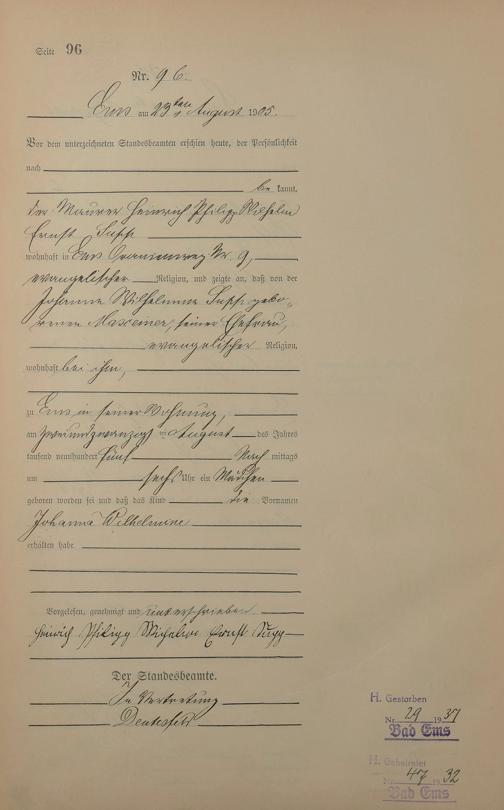 Seite 96
Nr. 96.
Ems am 23ten August 1905.
Vor dem unterzeichneten Standesbeamten erschien heute, der Persönlichkeit
nach
be kannt,
der Maurer Heinrich Philipp Wilhelm
Ernst Supp
wohnhaft in Ems Oranienweg Nr. 9,
evangelischer Religion, und zeigte an, daß von der
Johanna Wilhelmine Supp gebo-
renen, seiner Ehefrau,
evangelischer Religion,
wohnhaft bei ihm,
zu Ems in seiner Wohnung,
am zweiundzwanzigsten August des Jahres
tausend neunhundert fünf Nach mittags
um sechs Uhr ein Mädchen
geboren worden sei und daß das Kind die Vornamen
Johanna Wilhelmine
erhalten habe.
Vorgelesen, genehmigt und unterschrieben.
Heinrich Philipp Wilhelm Ernst Supp
Der Standesbeamte.
In Vertretung
H. Gestorben
Nr. 29 1937
Bad Ems
H. Geheiratet
Nr. 47 1932
Bad Ems